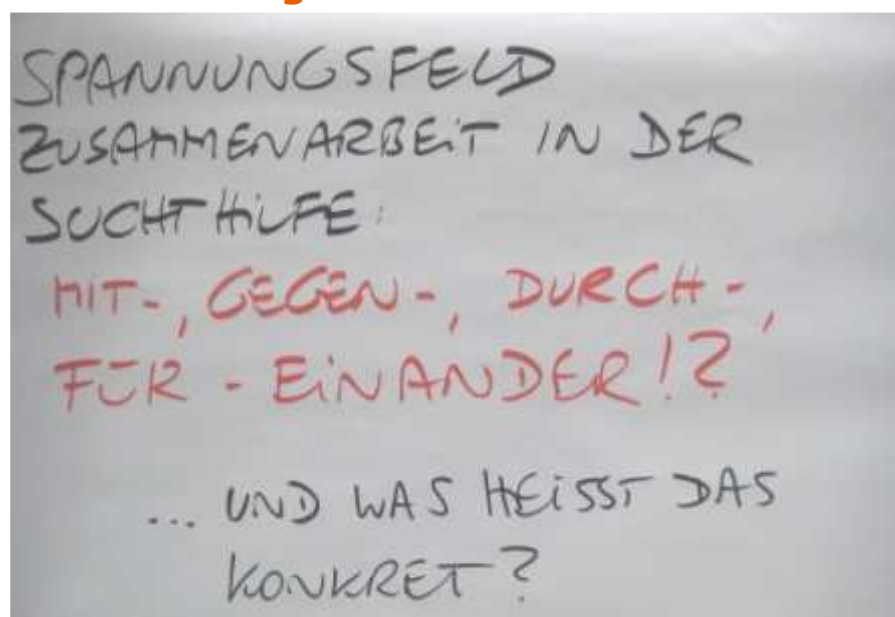 SPANNUNGSFELD
ZUSAMMENARBEIT IN DER
SUCHTHILFE:
MIT-, GEGEN-, DURCH-,
FÜR - EINANDER!?
... UND WAS HEISST DAS
KONKRET?